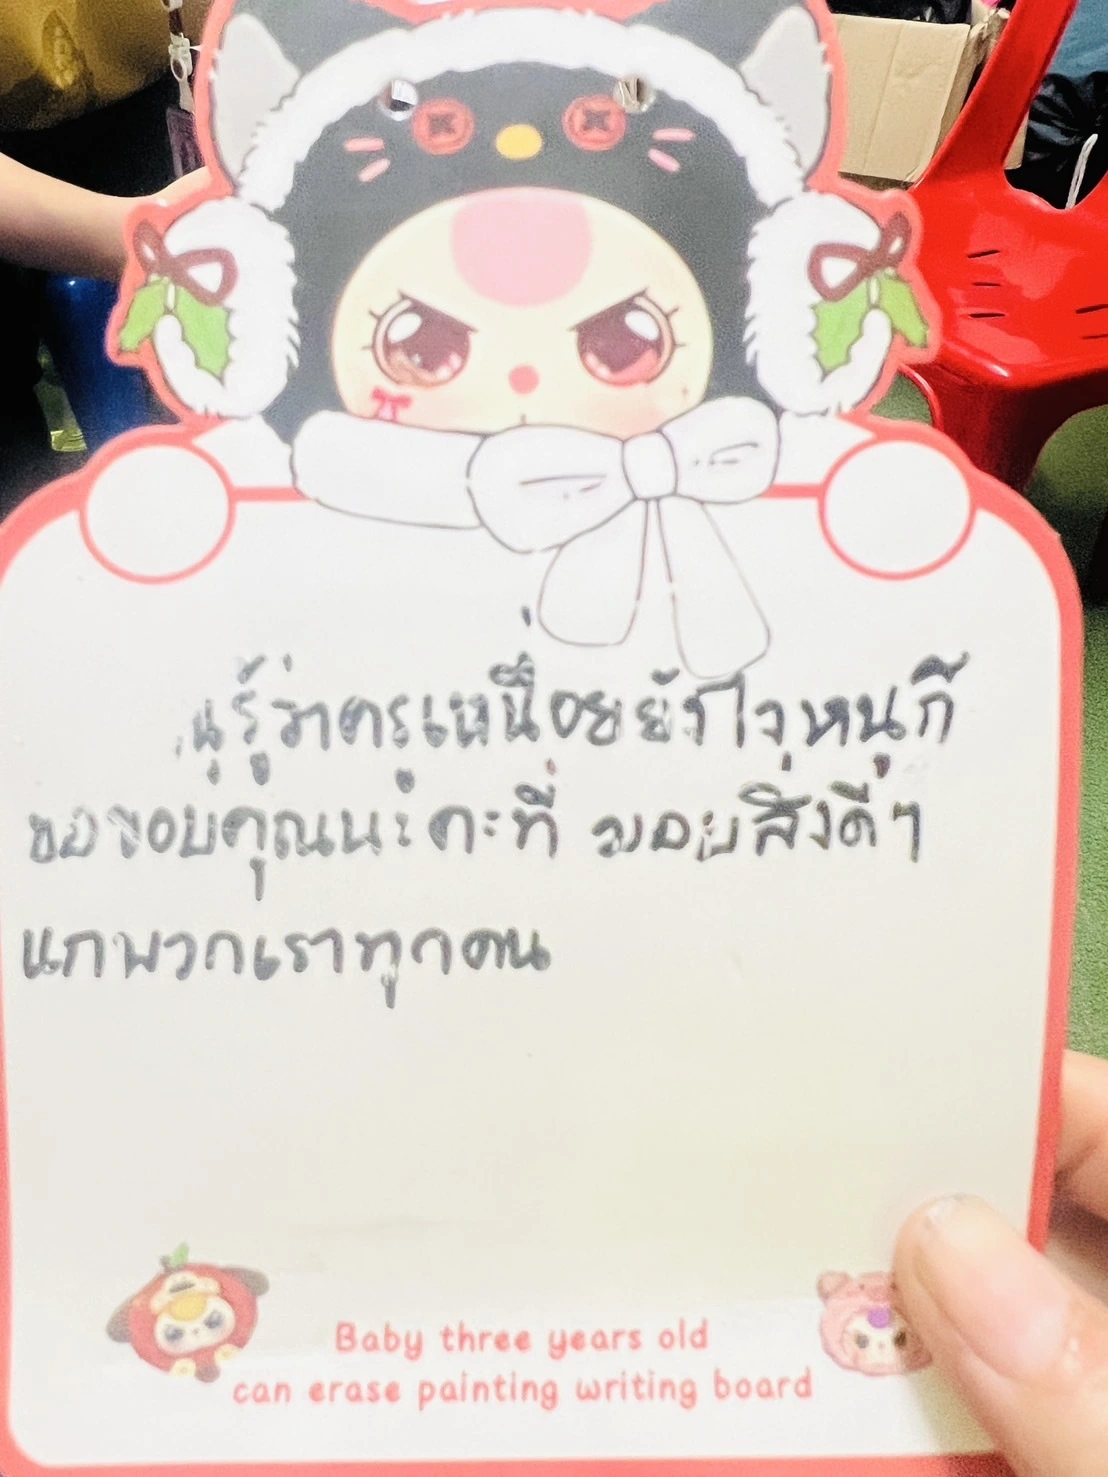 นุรู้ว่าครูเหนื่อยยังไงหนูก็
ขอขอบคุณนะคะที่ มอบสิ่งดีๆ
แกพวกเราทุกคน
Baby three years old
can erase painting writing board